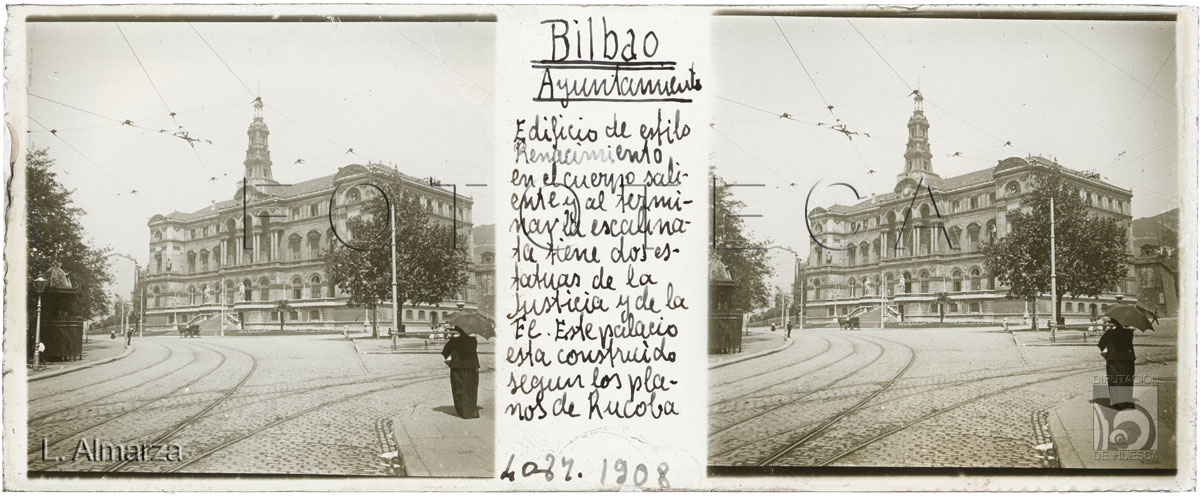 Bilbao
Ayuntamiento
Edificio de estilo
Renacimiento
en el cuerpo sali-
ente y al termi-
nar la escalina-
ta tiene dos es-
tatuas de la
Justicia y de la
Fe. Este palacio
esta construido
segun los pla-
nos de Rucoba
1908
L. Almarza
FOTOTECA
DIPUTACIÓN
DE HUESCA